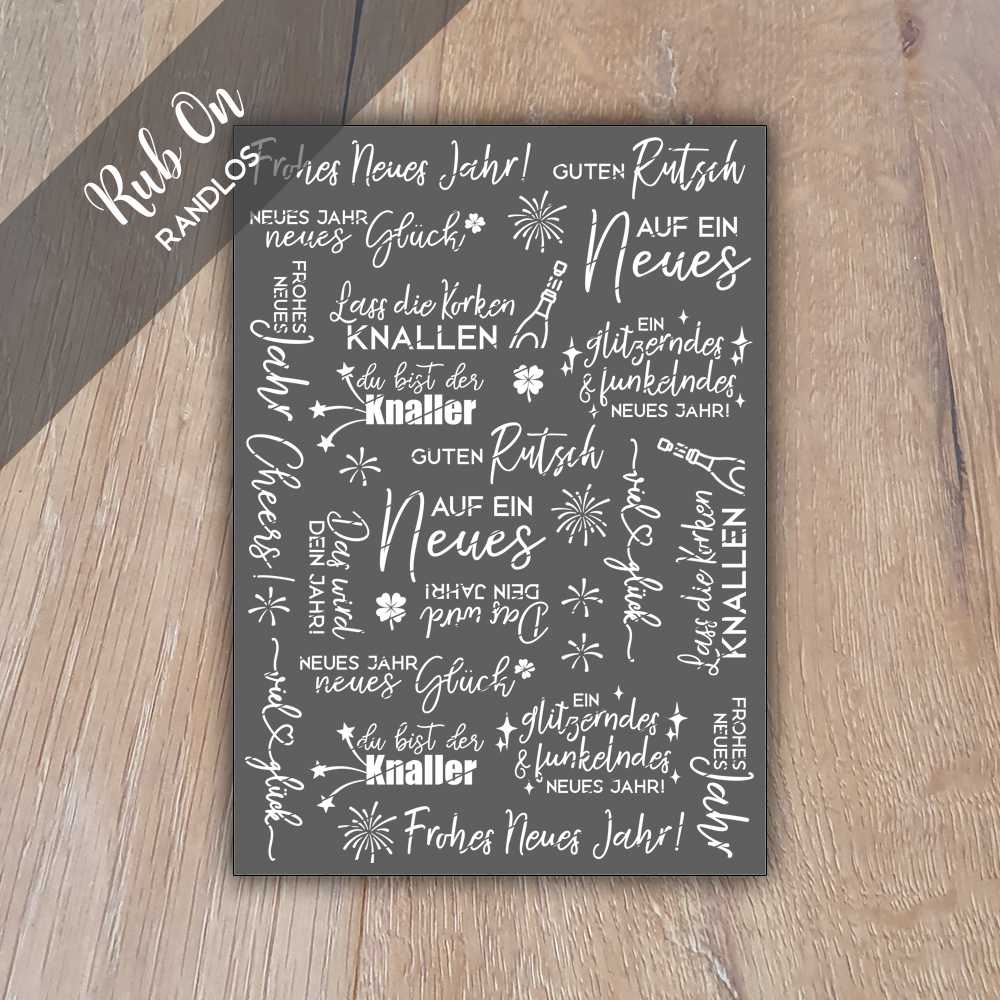 Rub On
RANDLOS
Frohes Neues Jahr!
GUTEN Rutsch
NEUES JAHR
neues Glück
AUF EIN
Neues
FROHES
NEUES
Jahr
Lass die Korken
KNALLEN
EIN
glitzerndes
& funkelndes
NEUES JAHR!
du bist der
Knaller
GUTEN Rutsch
Cheers!
viel glück
Lass die Korken
KNALLEN
AUF EIN
Neues
Das wird
DEIN JAHR!
Das wird
DEIN JAHR!
NEUES JAHR
neues Glück
viel glück
EIN
glitzerndes
& funkelndes
NEUES JAHR!
FROHES
NEUES
Jahr
du bist der
Knaller
Frohes Neues Jahr!